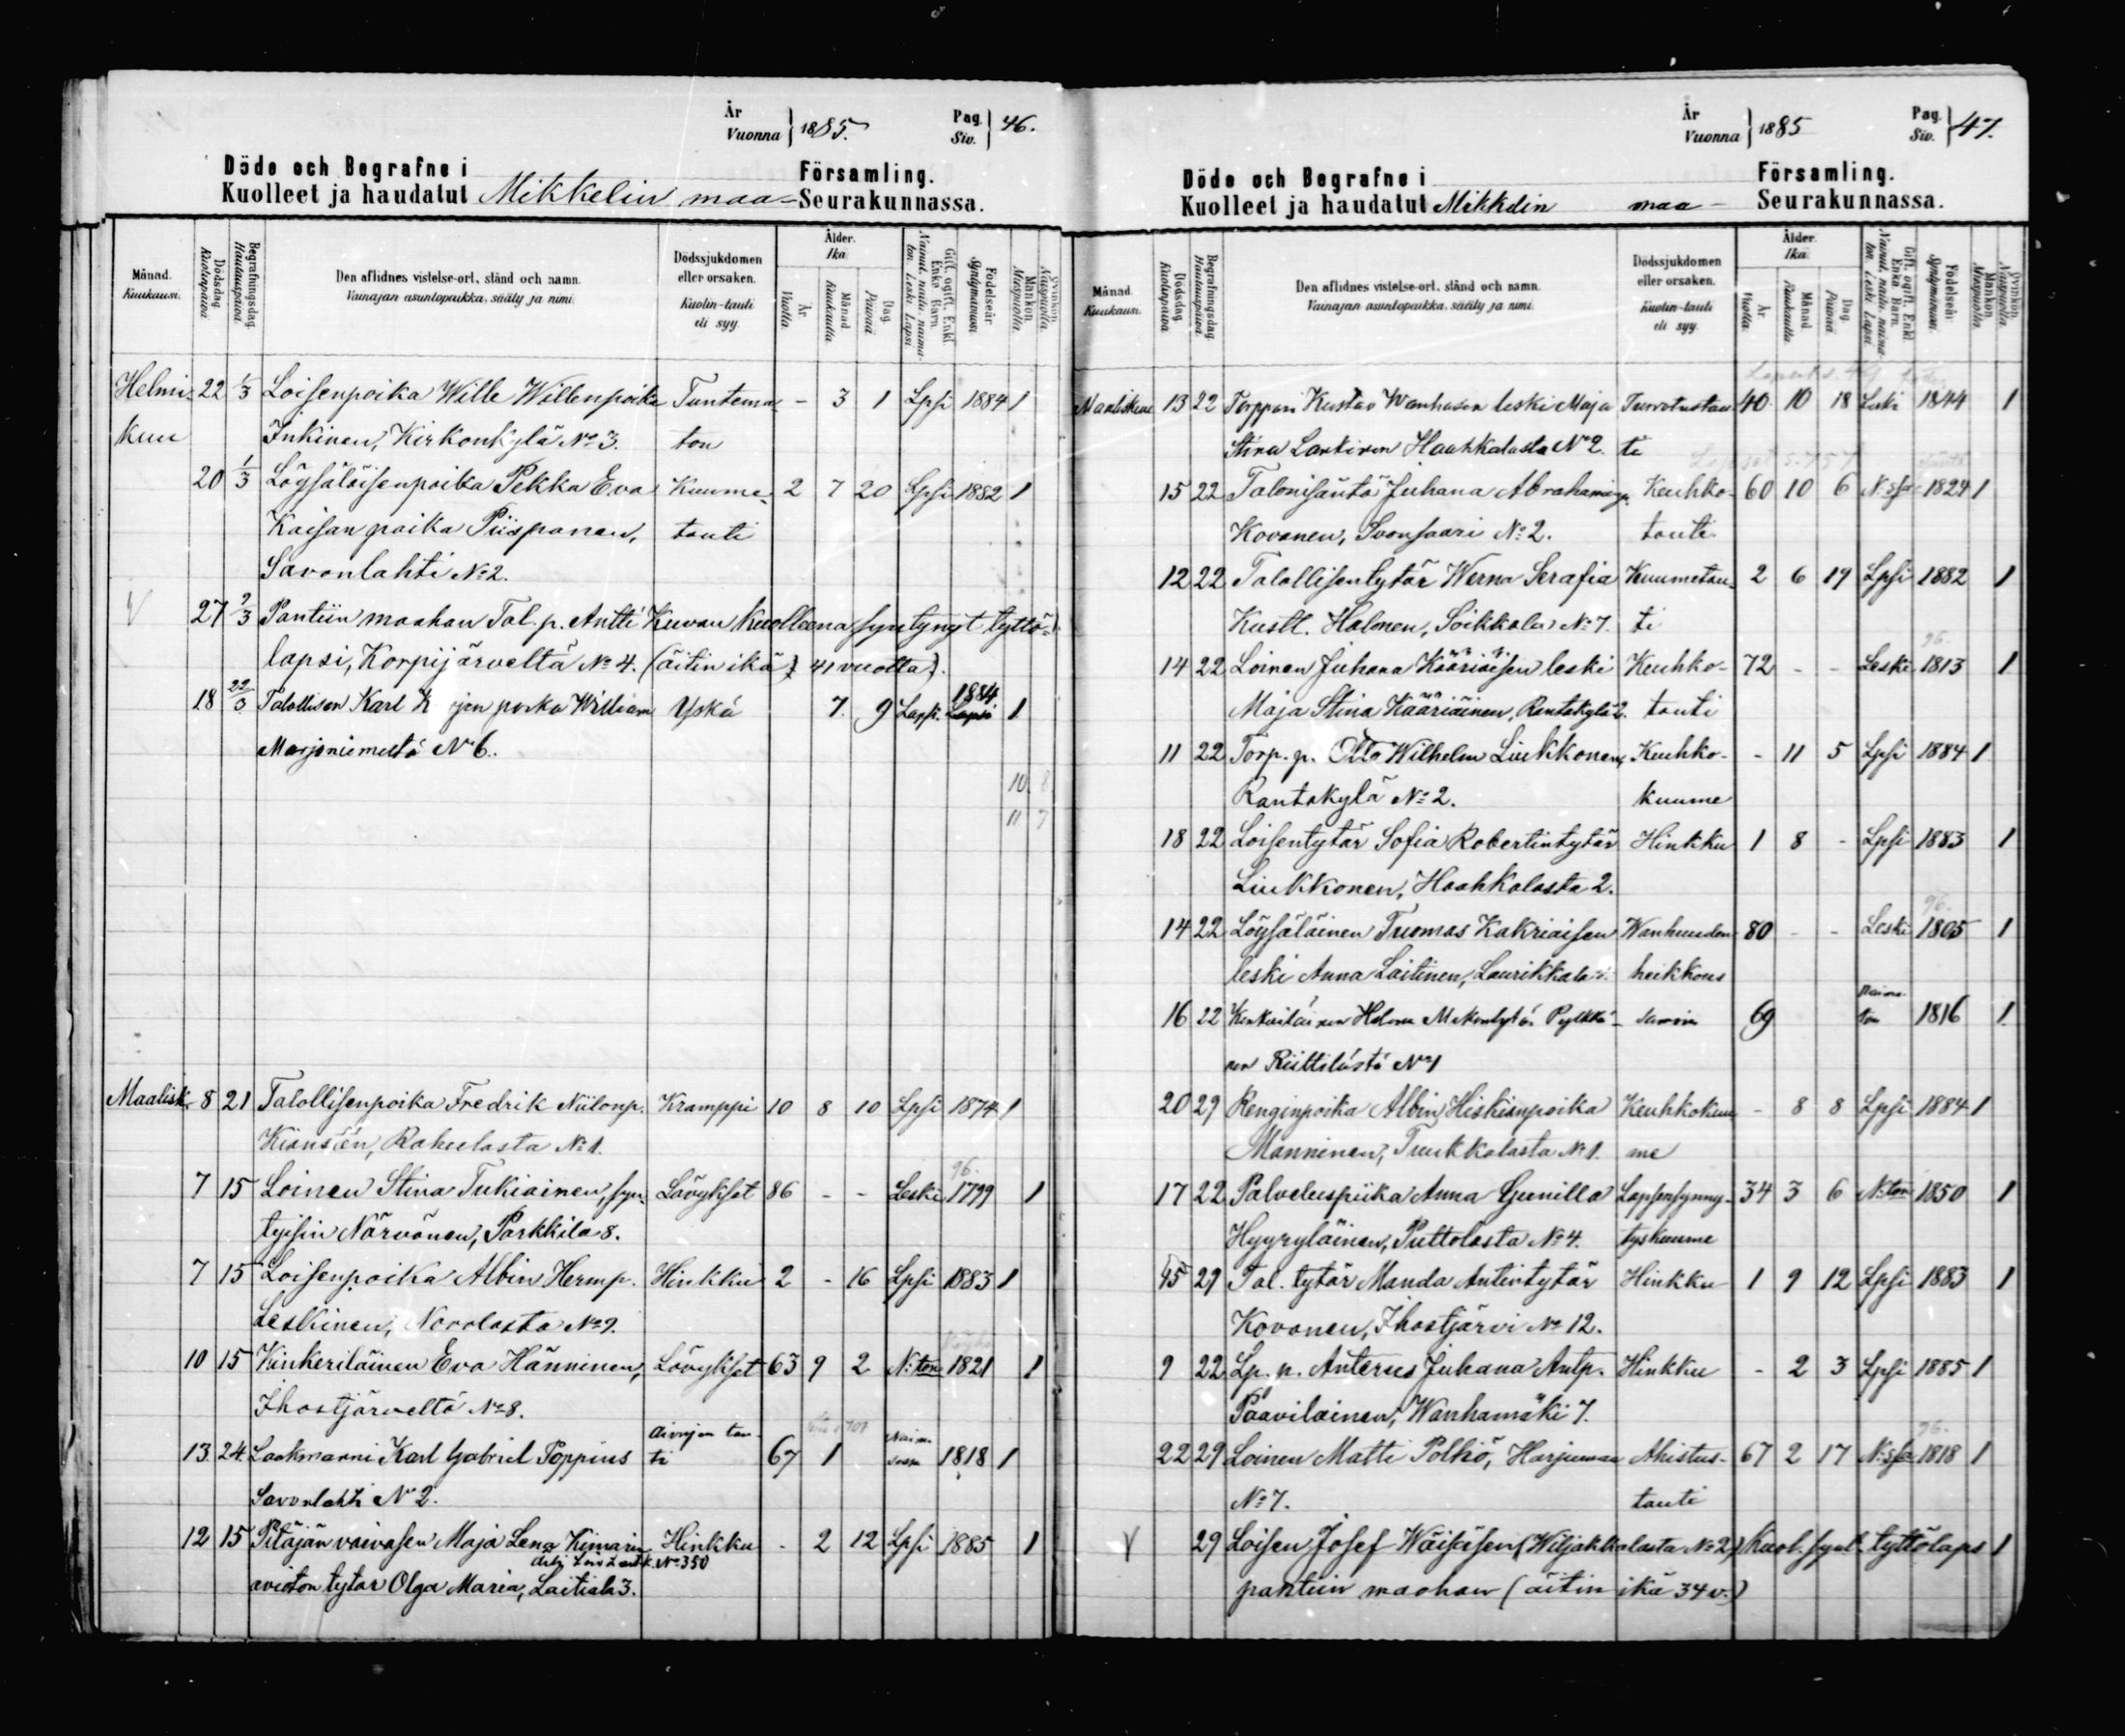 År
Vuonna } 1885.
Pag.
Siv. } 46.
Döde och Begrafne i Församling.
Kuolleet ja haudatut Mikkelin maa- Seurakunnassa.
Månad. Kuukausi.
Dödsdag. Kuolinpäivä
Begrafningsdag. Hautauspäivä.
Den aflidnes vistelse-ort, stånd och namn.
Vainajan asuntopaikka, sääty ja nimi.
Dödssjukdomen eller orsaken.
Kuolin-tauti eli syy.
Ålder. Ikä.
År Vuotta.
Månad Kuukautta
Dag. Päivää
Gift. ogift. Enkl. Enka Barn.
Födelseår Syntymävuosi.
Mankön. Miespuolia.
Qvinkön. Naispuolia.
Helmi- 22 1/3 Loisenpoika Wille Willenpoika Tuntema- - 3 1 Lpsi 1884 1
kuu Inkinen, Kirkonkylä No 3. ton
20 1/3 Löysäläisenpoika Pekka Eva Kuume- 2 7 20 Lpsi 1882 1
Kaisan poika Piispanen, tauti
Savonlahti No 2.
V 27 2/3 Pantiin maahan Tal. p. Antti Kuvan kuolleena syntynyt tyttö-
lapsi, Korpijärveltä No 4. (äitin ikä 41 vuotta).
18 22/3 Talollisen Karl poika William Yskä 7 9 Lapsi 1884 1
Marjoniemestä No 6.
10 8
11 7
Maalisk. 8 21 Talollisenpoika Fredrik Niilonp. Kramppi 10 8 10 Lpsi 1874 1
Kiansten, Rahulasta No 1.
96.
7 15 Loinen Stina Tukiainen, syn- Lävykset 86 - - Leski 1799 1
tyisin Närvänen, Parkkila 8.
7 15 Loisenpoika Albin Hermp. Hinkku 2 - 16 Lpsi 1883 1
Leskinen, Norolasta No 9.
10 15 Kinkeriläinen Eva Hänninen, Lävykset 63 9 2 N:ton 1821 1
Ihastjärveltä No 8.
13 24 Laakmanni Karl Gabriel Poppius Aivojen tau- ti 67 1 1818 1
Savonlahti No 2.
12 15 Pitäjän vaivasen Maja Lena Kinarin Hinkku - 2 12 Lpsi 1885 1
No 350
avioton tytar Olga Maria, Laitiala 3.
År
Vuonna } 1885
Pag.
Siv. } 47.
Döde och Begrafne i Församling.
Kuolleet ja haudatut Mikkelin maa- Seurakunnassa.
Månad. Kuukausi.
Dödsdag. Kuolinpäivä
Begrafningsdag. Hautauspäivä.
Den aflidnes vistelse-ort, stånd och namn.
Vainajan asuntopaikka, sääty ja nimi.
Dödssjukdomen eller orsaken.
Kuolin-tauti eli syy.
Ålder. Ikä.
År. Vuotta.
Månad Kuukautta
Dag. Päivää
Gift. ogift. Enkl. Enka Barn.
Födelseår. Syntymävuosi.
Mankön. Miespuolia.
Qvinkön. Naispuolia.
Maaliskuu 13 22 Torppari Kustav Wanhasen leski Maja Turvotustau- 40 10 18 Leski 1844 1
Stina Laukiren Haahkalasta No 2. ti
15 22 Talonisäntä Juhana Abrahaminp. Keuhko- 60 10 6 N:ssa 1824 1
Kovanen, Ivonsaari No 2. tauti
12 22 Talollisentytär Werna Serafia Kuumetau- 2 6 19 Lpsi 1882 1
Kustt. Halonen, Soikkala No 7. ti
96.
14 22 Loinen Juhana Kääriäisen leski Keuhko- 72 - - Leski 1813 1
Maja Stina Kääriäinen, Rantakylä 2. tauti
11 22 Torp. p. Otto Wilhelm Liukkonen, Keuhko- - 11 5 Lpsi 1884 1
Rantakylä No 2. kuume
18 22 Loisentytär Sofia Robertintytär Hinkku 1 8 - Lpsi 1883 1
Liukkonen, Haahkalasta 2.
96.
14 22 Löysäläinen Tuomas Kakriaisen Wanhuuden- 80 - - Leski 1805 1
leski Anna Laitinen, Laurikkala heikkous
16 22 Kinkeriläinen Helena Pylkkä- samoin 69 Naima- ton 1816 1
nen Riittilästä No 1
20 29 Renginpoika Albin Hiskianpoika Keuhkokuu- - 8 8 Lpsi 1884 1
Manninen, Tuukkalasta No 1. me
17 22 Palveluspiika Anna Gunilla Lapsensynny- 34 3 6 N:ton 1850 1
Hyyryläinen, Puttolasta No 4. tyskuume
15 29 Tal. tytär Manda Antintytär Hinkku 1 9 12 Lpsi 1883 1
Kovanen, Ihastjärvi No 12.
9 22 Lp. p. Anterus Juhana Antp. Hinkku - 2 3 Lpsi 1885 1
Paavilainen, Wanhamäki 7.
96.
22 29 Loinen Matti Polkio, Harjumaa Ahistus- 67 2 17 N:ssa 1818 1
No 7. tauti
V 29 Loisen Josef Wäisäsen (Wiljakkalasta No 2) kuol. synt. tyttölaps 1
pantiin maahan (äitin ikä 34 v.)